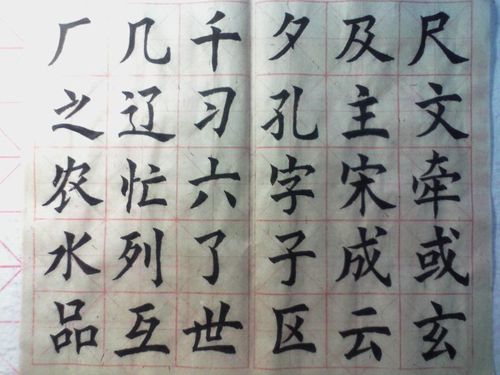 厂几千夕及尺
之辽习孔主文
农忙六字宋牵
水列了子成或
品互世区云玄